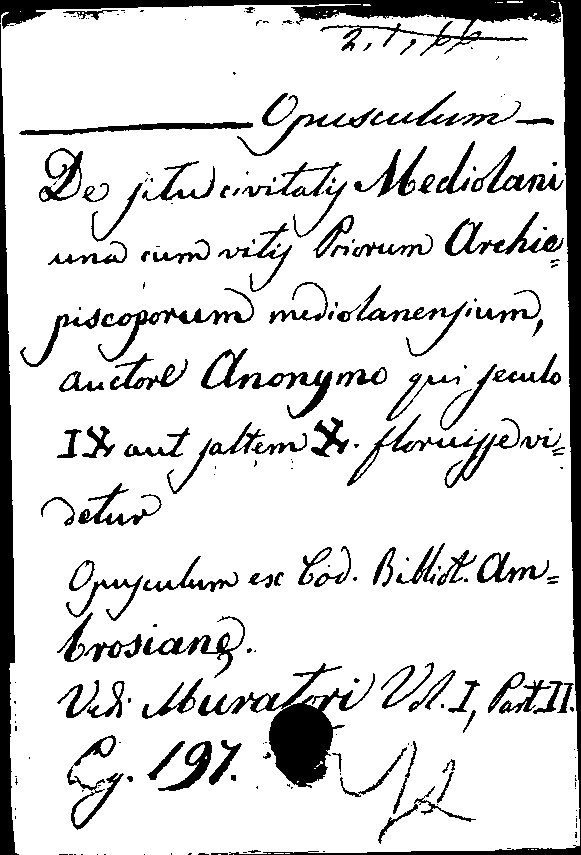 2,1,66
Opusculum
De situ civitatis Mediolani
una cum vitis Priorum Archie=
piscoporum mediolanensium,
auctore Anonymo qui seculo
IX aut saltem X. floruisse vi=
detur
Opusculum ex Cod. Bibliot. Am=
brosianę.
Vedi Muratori Vol. I, Part. II.
197.